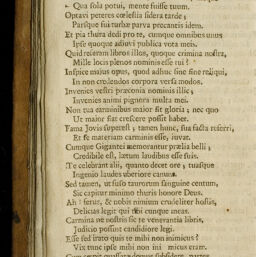 Qua sola potui, mente fuisse tuum.
Optavi peteres cœlestia sidera tarde;
Parsque fui turbæ parva precantis idem.
Et pia thura dedi pro te, cumque omnibus unus
Ipse quoque adjuvi publica vota meis.
Quid referam libros illos, quoque crimina nostra,
Mille locis plenos nominis esse tui?
Inspice majus opus, quod adhuc sine fine reliqui,
In non credendos corpora versa modos.
Invenies vestri præconia nominis illic;
Invenies animi pignora multa mei.
Non tua carminibus major fit gloria; nec quo
Ut major fiat crescere possit habet.
Fama Jovis superest; tamen hunc, sua facta referri,
Et se materiam carminis esse, juvat.
Cumque Gigantei memorantur prælia belli,
Credibile est, lætum laudibus esse suis.
Te celebrant alii, quanto decet ore; tuasque
Ingenio laudes uberiore canunt.
Sed tamen, ut fuso taurorum sanguine centum,
Sic capitur minimo thuris honore Deus.
Ah! ferus, & nobis nimium crudeliter hostis,
Delicias legit qui tibi cunque meas.
Carmina ne nostris sic te venerantia libris,
Judicio possint candidiore legi.
Esse sed irato quis te mihi non inimicus?
Vix tunc ipse mihi non inimicus eram.